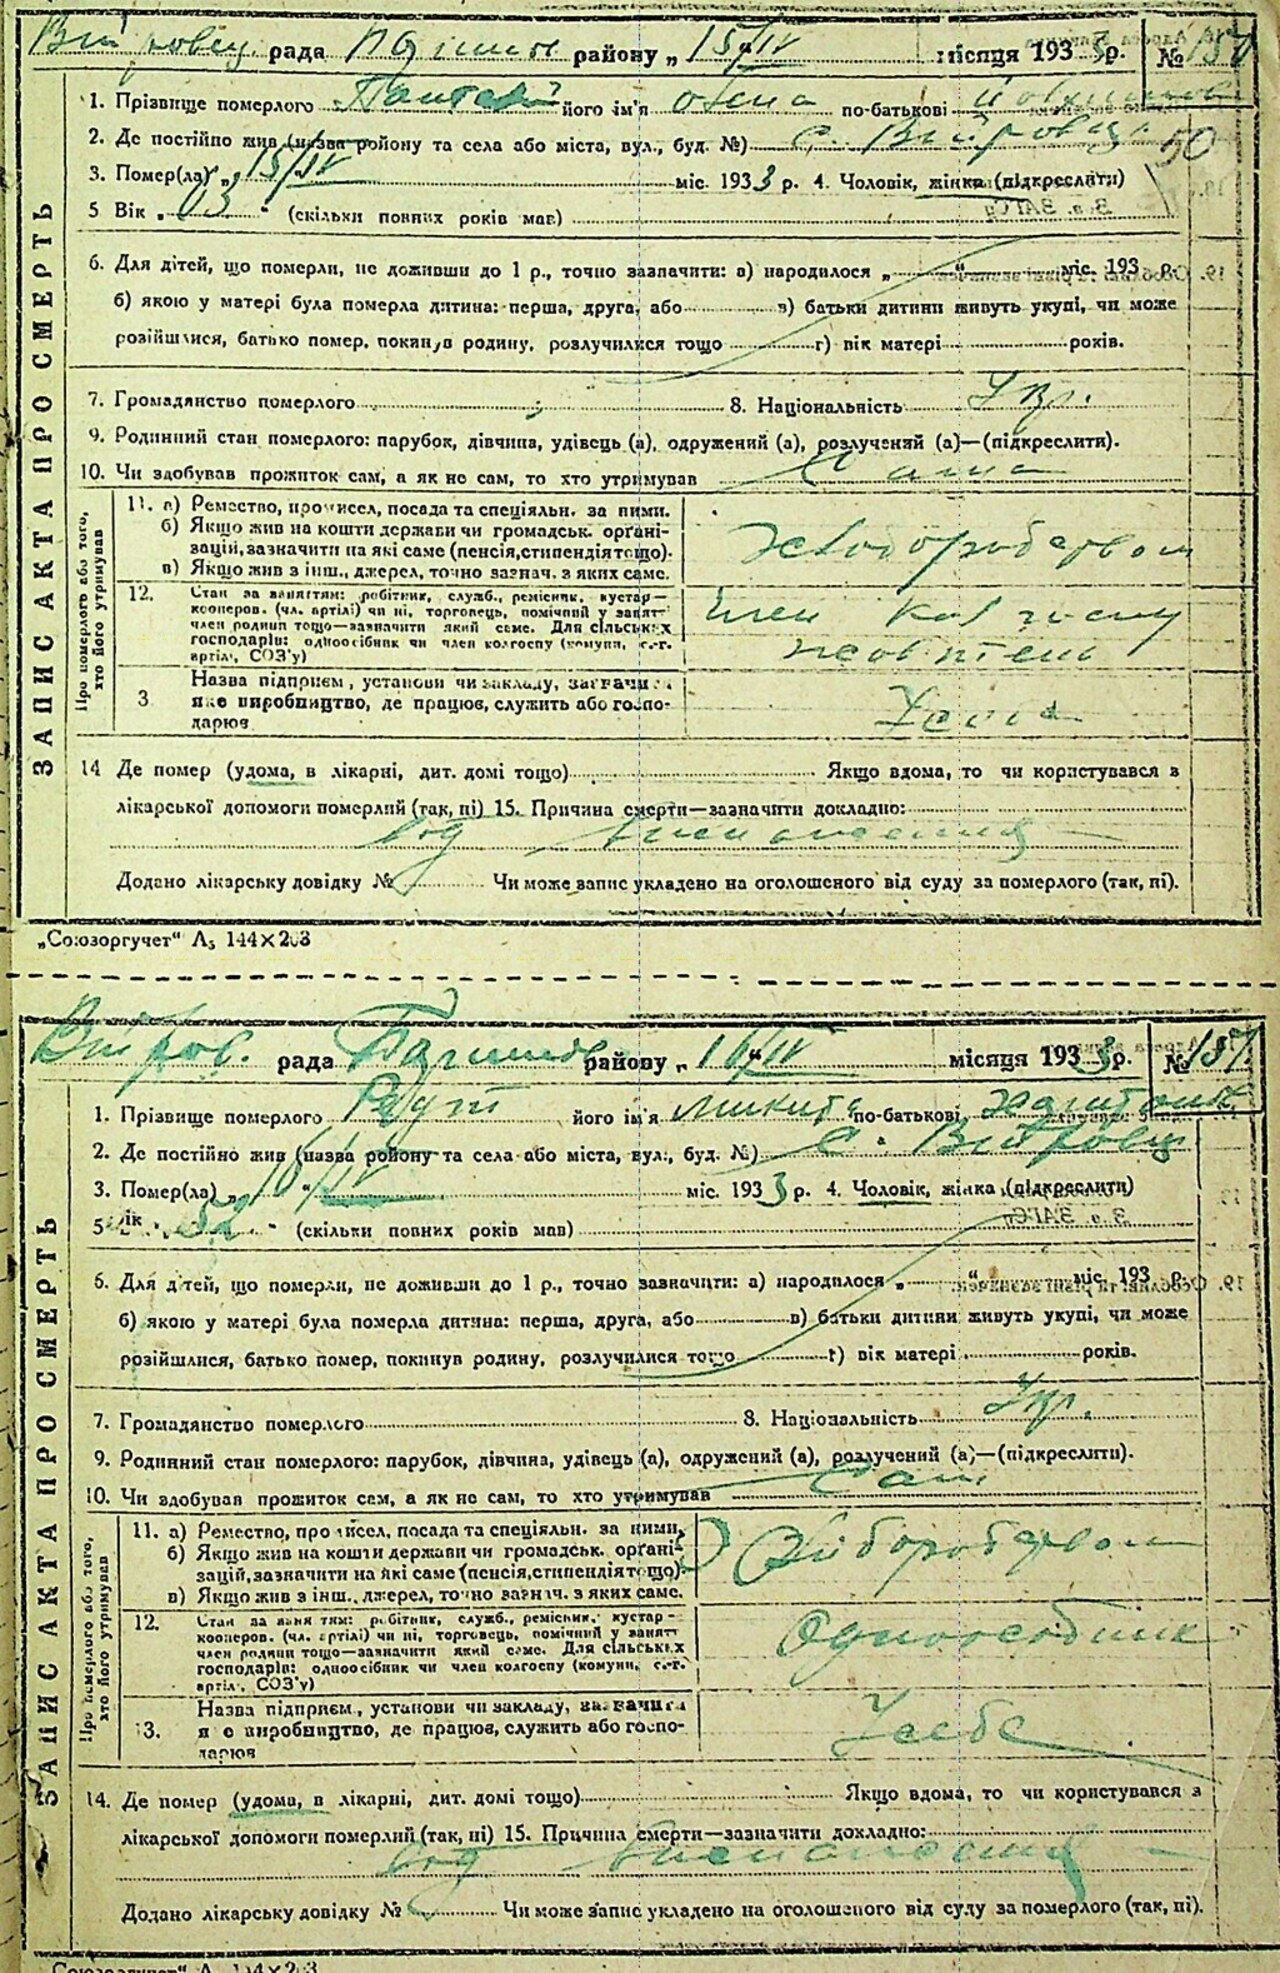 рада району „15/IV місяця 1933 р. №
1. Прізвище померлого його ім'я по-батькові
2. Де постійно жив (назва району та села або міста, вул., буд. №) с.
50
3. Помер(ла) „15/IV міс. 1933 р. 4. Чоловік, жінка (підкреслити)
5 Вік „ " (скільки повних років мав)
6. Для дітей, що померли, не доживши до 1 р., точно зазначити: а) народилося „ " міс. 193 р.
б) якою у матері була померла дитина: перша, друга, або в) батьки дитини живуть укупі, чи може
розійшлися, батько помер, покинув родину, розлучилися тощо г) вік матері років.
7. Громадянство померлого 8. Національність Укр.
9. Родинний стан померлого: парубок, дівчина, удівець (а), одружений (а), розлучений (а)—(підкреслити).
10. Чи здобував прожиток сам, а як не сам, то хто утримував Сама
ЗАПИС АКТА ПРО СМЕРТЬ
Про померлого або того, хто його утримував
11. а) Ремество, промисел, посада та спеціяльн. за ними.
б) Якщо жив на кошти держави чи громадськ. орґані-
зацій, зазначити на які саме (пенсія, стипендія тощо).
в) Якщо жив з інш., джерел, точно зазнач. з яких саме.
Хліборобством
12. Стан за заняттям: робітник, служб., ремісник, кустар—
кооперов. (чл. артілі) чи ні, торговець, помічний у занятт
член родини тощо—зазначити який саме. Для сільських
господарів: одноосібник чи член колгоспу (комуни, с.-г.
артіл, СОЗ'у)
член
3 Назва підприєм, установи чи закладу, зазначити
яке виробництво, де працює, служить або госпо-
дарює
14 Де помер (удома, в лікарні, дит. домі тощо) Якщо вдома, то чи користувався з
лікарської допомоги померлий (так, ні) 15. Причина смерти—зазначити докладно:
од виснаження
Додано лікарську довідку № Чи може запис укладено на оголошеного від суду за померлого (так, ні).
„Союзоргучет" А₅ 144×203
рада району „16/IV місяця 1933 р. № 151
1. Прізвище померлого Редут його ім'я Микита по-батькові
2. Де постійно жив (назва району та села або міста, вул., буд. №) с. Вітровці
3. Помер(ла) „16/IV міс. 1933 р. 4. Чоловік, жінка (підкреслити)
5 Вік „52" (скільки повних років мав)
6. Для дітей, що померли, не доживши до 1 р., точно зазначити: а) народилося „ " міс. 193 р.
б) якою у матері була померла дитина: перша, друга, або в) батьки дитини живуть укупі, чи може
розійшлися, батько помер, покинув родину, розлучилися тощо г) вік матері років.
7. Громадянство померлого 8. Національність Укр.
9. Родинний стан померлого: парубок, дівчина, удівець (а), одружений (а), розлучений (а)—(підкреслити).
10. Чи здобував прожиток сам, а як не сам, то хто утримував Сам
ЗАПИС АКТА ПРО СМЕРТЬ
Про померлого або того, хто його утримував
11. а) Ремество, промисел, посада та спеціяльн. за ними,
б) Якщо жив на кошти держави чи громадськ. орґані-
зацій, зазначити на які саме (пенсія, стипендія тощо).
в) Якщо жив з інш., джерел, точно зазнач. з яких саме.
Хліборобством
12. Стан за заняттям: робітник, служб., ремісник, кустар—
кооперов. (чл. артілі) чи ні, торговець, помічний у занятт
член родини тощо—зазначити який саме. Для сільських
господарів: одноосібник чи член колгоспу (комуни, с.-г.
артіл, СОЗ'у)
Одноосібник
13. Назва підприєм, установи чи закладу, зазначити
яке виробництво, де працює, служить або госпо-
дарює
У себе
14. Де помер (удома, в лікарні, дит. домі тощо) Якщо вдома, то чи користувався з
лікарської допомоги померлий (так, ні) 15. Причина смерти—зазначити докладно:
од виснаження
Додано лікарську довідку № Чи може запис укладено на оголошеного від суду за померлого (так, ні).
„Союзоргучет" А 144×203